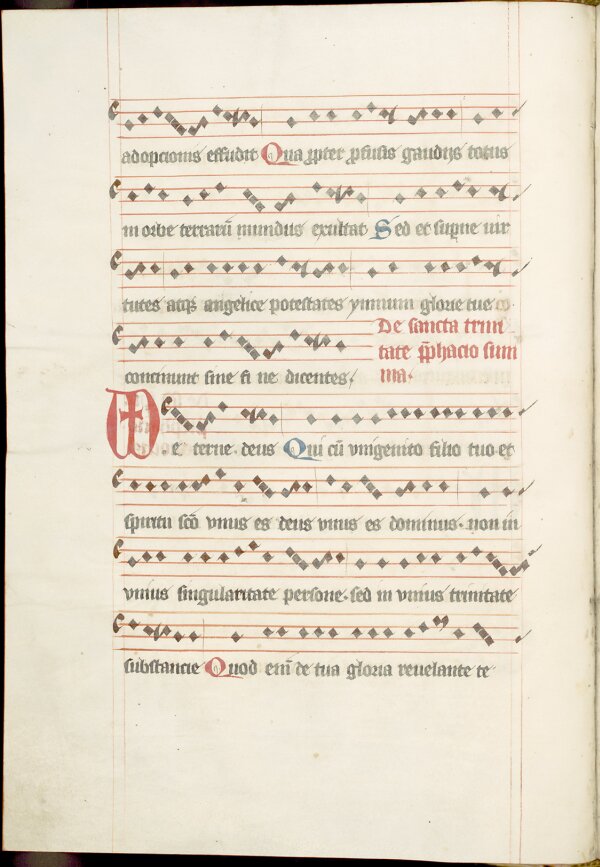 adopcionis effudit Qua ꝓpter ꝓfusis gaudijs totus
in orbe terrarū mundus exultat Sed et suꝑne uir
tutes atqꝫ angelice potestates ymnum glorie tue co
De sancta trini
tate p̄phacio sum
ma.
concinunt sine fi ne dicentes.
e terne deus Qui cū vnigenito filio tuo et
spiritu sc̄o vnus es deus vnus es dominus. non in
vnius singularitate persone. sed in vnius trinitate
substancie Quod eni̅ de tua gloria reuelante te